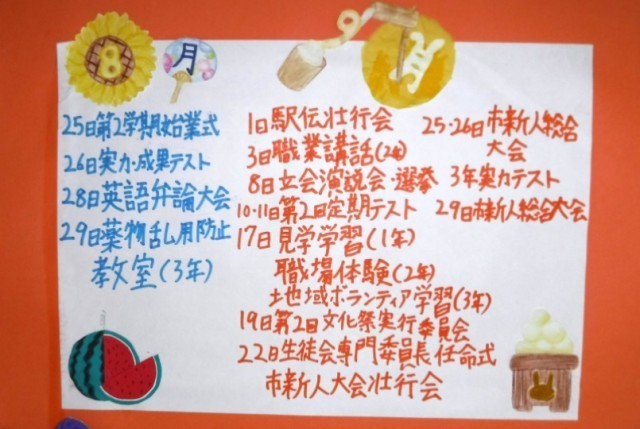 8月
25日第2学期始業式
26日実力・成果テスト
28日英語弁論大会
29日薬物乱用防止
教室(3年)
9月
1日駅伝壮行会
3日職業講話(2年)
8日立会演説会・選挙
10・11日第2回定期テスト
17日見学学習(1年)
職場体験(2年)
地域ボランティア学習(3年)
19日第2回文化祭実行委員会
22日生徒会専門委員長任命式
市新人大会壮行会
25・26日市新人総合
大会
3年実力テスト
29日市新人総合大会